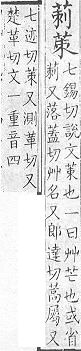 莿茦
七錫切說文茦也一曰艸芒也或省
莿又落蓋切艸名又郎達切蒿屬又
七迹切茦又測革切又
楚革切文一重音四